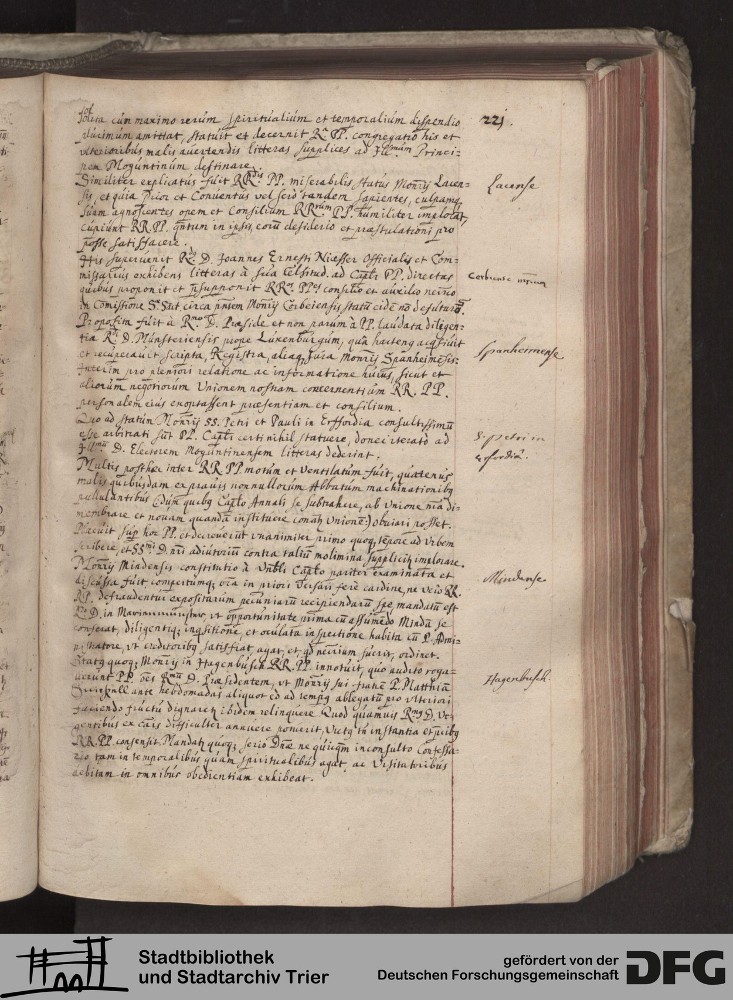 221.
tota cum maximo rerum spiritualium et temporalium dispendio
plurimum amittat, statuit et decernit R. PP. congregatio his et
ulterioribus malis avertendis litteras supplices ad Illmum Princi-
pem Moguntinum destinare.
Similiter explicatus fuit RRdis PP. miserabilis status Monrij Lacen-
sis, et quia Prior et Conventus vel sero tandem sapientes, culpamq
suam agnoscentes opem et Consilium RRrum PP. humiliter implorat,
cupiunt RR PP. qntum in ipsis, eorum desiderio et præstulationi pro
posse satisfacere.
Lacense
His supervenit R. D. Joannes Ernesti Officialis et Com-
missarius exhibens litteras à sua Celsitud. ad Caplr PP. directas
quibus proponit et PP consilio et auxilio
in Comissione circa pntem Monrij Corbeiensis statu
Corbiense
Proposita fuit à Rmo D. Præside et non parum à PP. laudata diligen-
tia R. D. Münsteriensis prope Luxenburgum, qua hactenq acquisivit
et recuperavit scripta, Registra, aliaq jura Monrij Spanheimēsis.
Interim pro pleniori relatione ac informatione hujus, sicut et
aliorum negotiorum Unionem nostram concernentium RR. PP.
personalem eius exoptassent præsentiam et consilium.
Spanheimense
Quo ad statum Monrij SS. Petri et Pauli in Erffordia consultissimū
esse arbitrati sūt PP. Caplr certi nihil statuere, donec iterato ad
D. Electorem Moguntinensem litteras dederint.
S. Petri in
Erfordia.
Multis posthec inter RR PP. motum et ventilatum fuit, quatenus
malis quibusdam ex pravis nonnullorum Abbatum machinationibq
pullulantibus quibq Caplo Annali se subtrahere, ab Unione nra di-
membrare et novam quandā instituere conatq Unione obviari posset.
Placuit sup hoc PP. et decreverut unanimiter primo quoq tēpore ad Urbem
scribere, et SSmi D. nri adiutorium contra taliū molimina suppliciter implorare.
Monrij Mindensis constitutio à Vnbli Caplo pariter examinata et
discussa fuit compertumq, oīa in priori versari fere cardine, ne vero RR.
PP. defraudentur expositarum pecuniarū recipiendarū spe, mandatū est
R. D. in ut opportunitate prima cū assumēdo Mindā se
conferat, diligentiq inqsitione, et oculata inspectione habita cū P. Admi-
nistratore, ut creditoribq satisfiat agat, et, qd necessum fuerit, ordinet.
Mindense
Statq quoq Monrij in Hagenbusch RR. PP. innotuit, quo audito roga-
verunt PP. oēs Rmū D. Præsidentem, ut Monrij sui fratrē P. Matthiā
ante hebdomadas aliquot eò ad tempq ablegatū pro ulteriori
faciendo fructu dignaretr ibidem relinquere. Quod quamvis Rmq D. ur-
gentibus ex causis difficulter annuere potuerit, victq tn instantia et pcibq
RR. PP. consensit. Mandatr quoq serio Dnæ ne quicqm inconsulto Confessa-
rio tam in temporalibus quam spiritualibus agat, ac Visitatoribus
debitam in omnibus obedientiam exhibeat.
Hagenbusch.
Stadtbibliothek
und Stadtarchiv Trier
gefördert von der
Deutschen Forschungsgemeinschaft
DFG